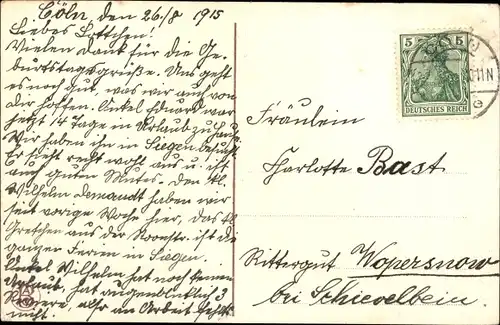 Cöln, den 26/8 1915
Liebes Lottchen!
Vielen Dank für die Ge-
burtstagsgrüße. Uns geht
es noch gut, was wir auch von
dir hoffen. Onkel Eduard war
jetzt 14 Tage in Urlaub zu Haus.
Wir haben ihn in Siegen besucht.
Er sieht recht wohl aus u. ist
auch guten Mutes. Den kl.
Wilhelm Demandt haben wir
seit vorige Woche hier, das kl.
Gretchen aus der Roonstr. ist die
ganzen Ferien in Siegen.
Onkel Wilhelm hat noch keinen
Urlaub, hat augenblicklich 3
also an Arbeit fehlts
nicht.
5 5
DEUTSCHES REICH
11N
Fräulein
Charlotte Bast
Rittergut Wopersnow
bei Schievelbein.